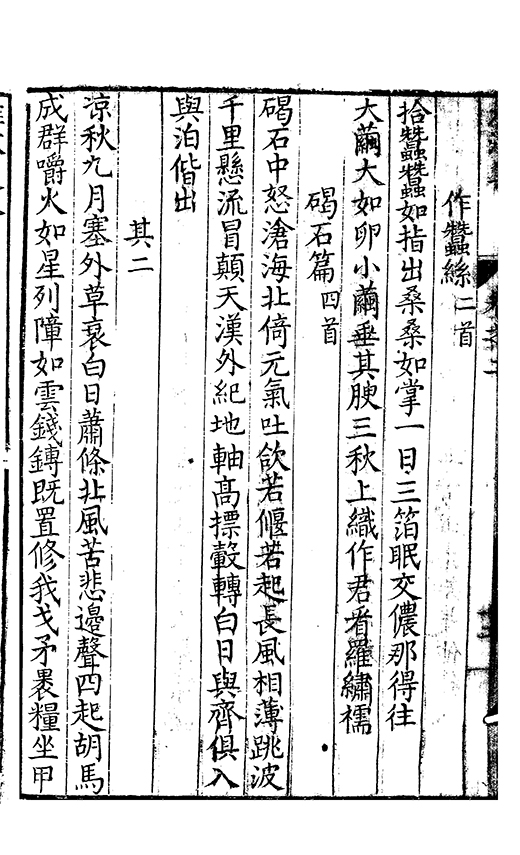 作蠶絲二首
拾蠶蠶如指出桑桑如掌一日三箔眠交儂那得往
大繭大如卵小繭垂其腴三秋上織作君看羅繡襦
碣石篇四首
碣石中怒滄海北倚元氣吐飲若偃若起長風相薄跳波
千里懸流冒顛天漢外紀地軸高摽轂轉白日與齊俱入
與泊偕出
其二
涼秋九月塞外草衰白日蕭條北風苦悲邊聲四起胡馬
成群嚼火如星列障如雲錢鎛既置修我戈矛褁糧坐甲